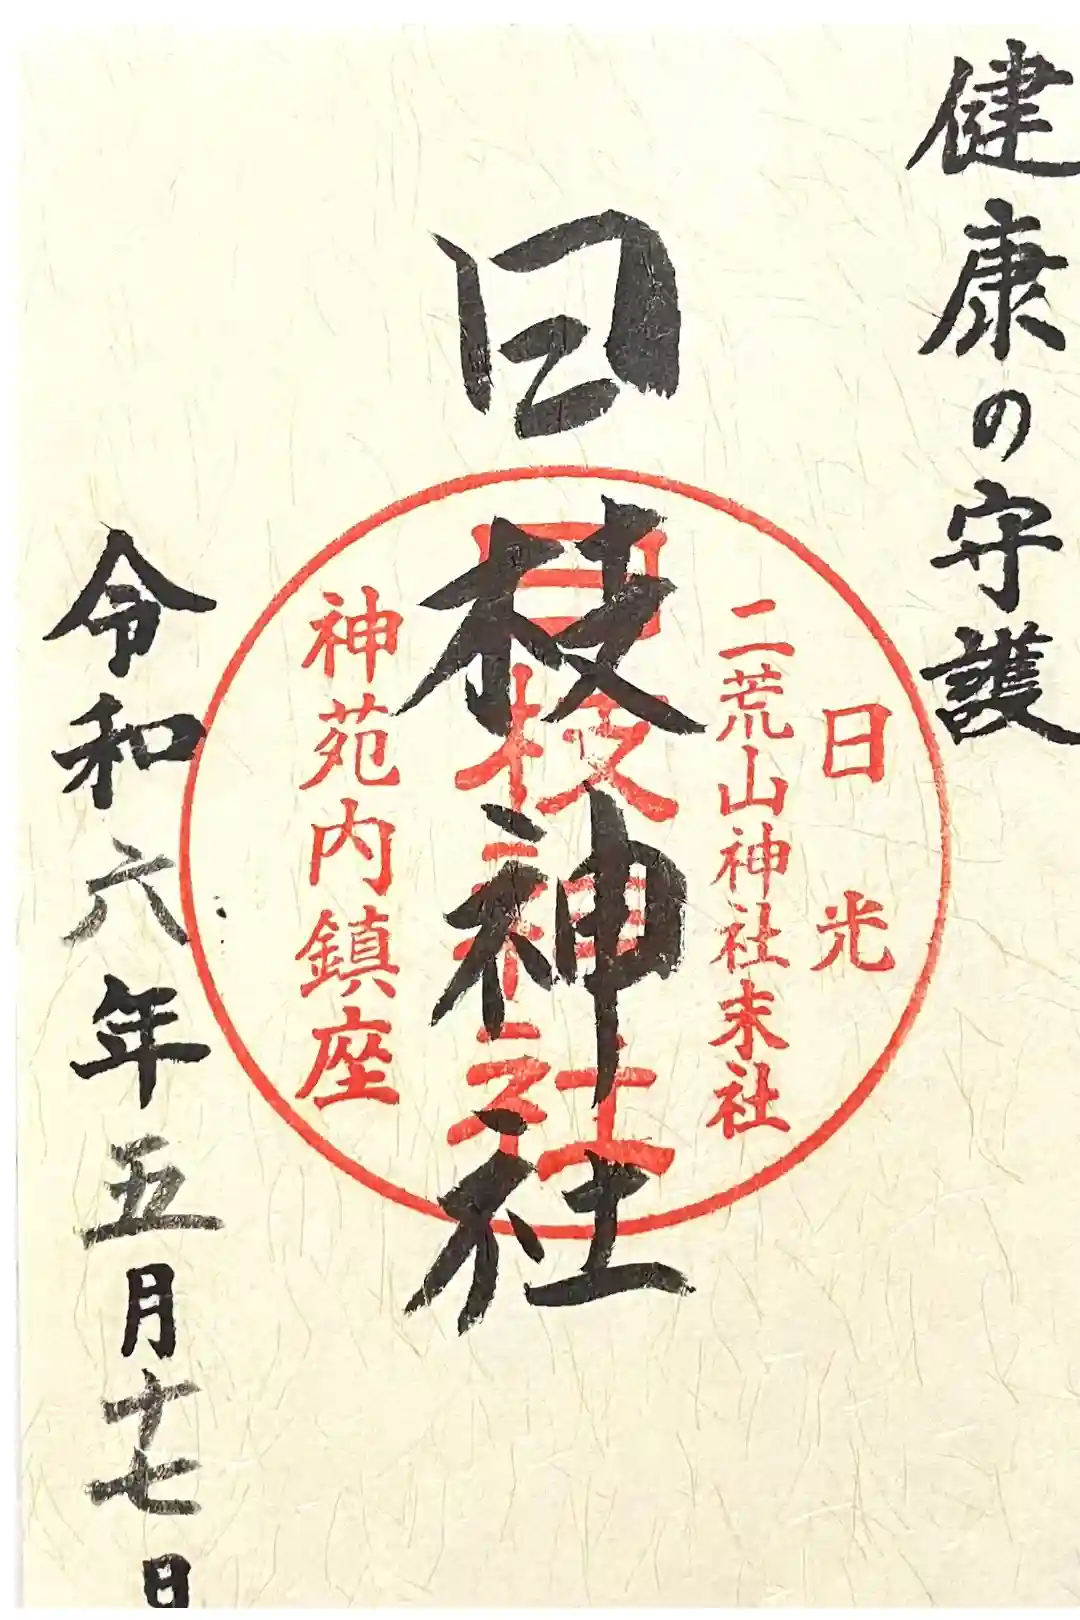 健康の守護
日光
二荒山神社末社
日枝神社
日枝神社
神苑内鎮座
令和六年五月十七日